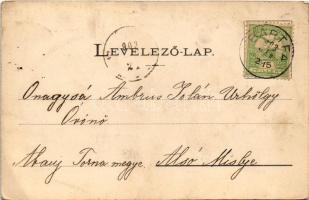 LEVELEZŐ-LAP.
Onagysá Ambrus Zolán Urhölgy
Óvónő
Abauj Torna megye. Alsó Mislye